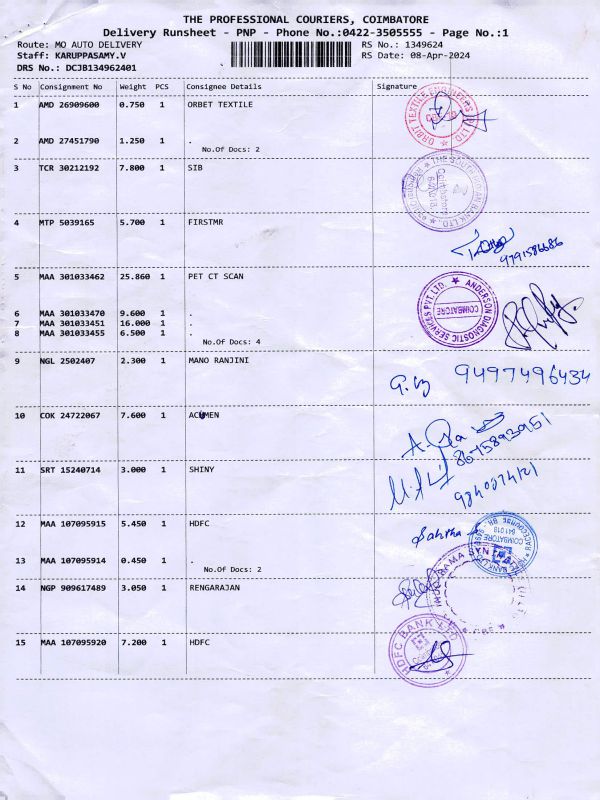 THE PROFESSIONAL COURIERS, COIMBATORE
Delivery Runsheet - PNP - Phone No.:0422-3505555 - Page No.:1
Route: MO AUTO DELIVERY RS No.: 1349624
Staff: KARUPPASAMY.V RS Date: 08-Apr-2024
DRS No.: DCJB134962401
S No Consignment No Weight PCS Consignee Details Signature
1 AMD 26909600 0.750 1 ORBET TEXTILE
2 AMD 27451790 1.250 1 .
No.Of Docs: 2
3 TCR 30212192 7.800 1 SIB
4 MTP 5039165 5.700 1 FIRSTMR
4791586686
5 MAA 301033462 25.860 1 PET CT SCAN
ANDERSON DIAGNOSTIC SERVICES PVT.LTD. COIMBATORE
6 MAA 301033470 9.600 1 .
7 MAA 301033451 16.000 1 .
8 MAA 301033455 6.500 1 .
No.Of Docs: 4
9 NGL 2502407 2.300 1 MANO RANJINI
9497496434
10 COK 24722067 7.600 1 ACUMEN
8675893951
11 SRT 15240714 3.000 1 SHINY
12 MAA 107095915 5.450 1 HDFC
13 MAA 107095914 0.450 1 .
No.Of Docs: 2
14 NGP 909617489 3.050 1 RENGARAJAN
15 MAA 107095920 7.200 1 HDFC
HDFC BANK LTD